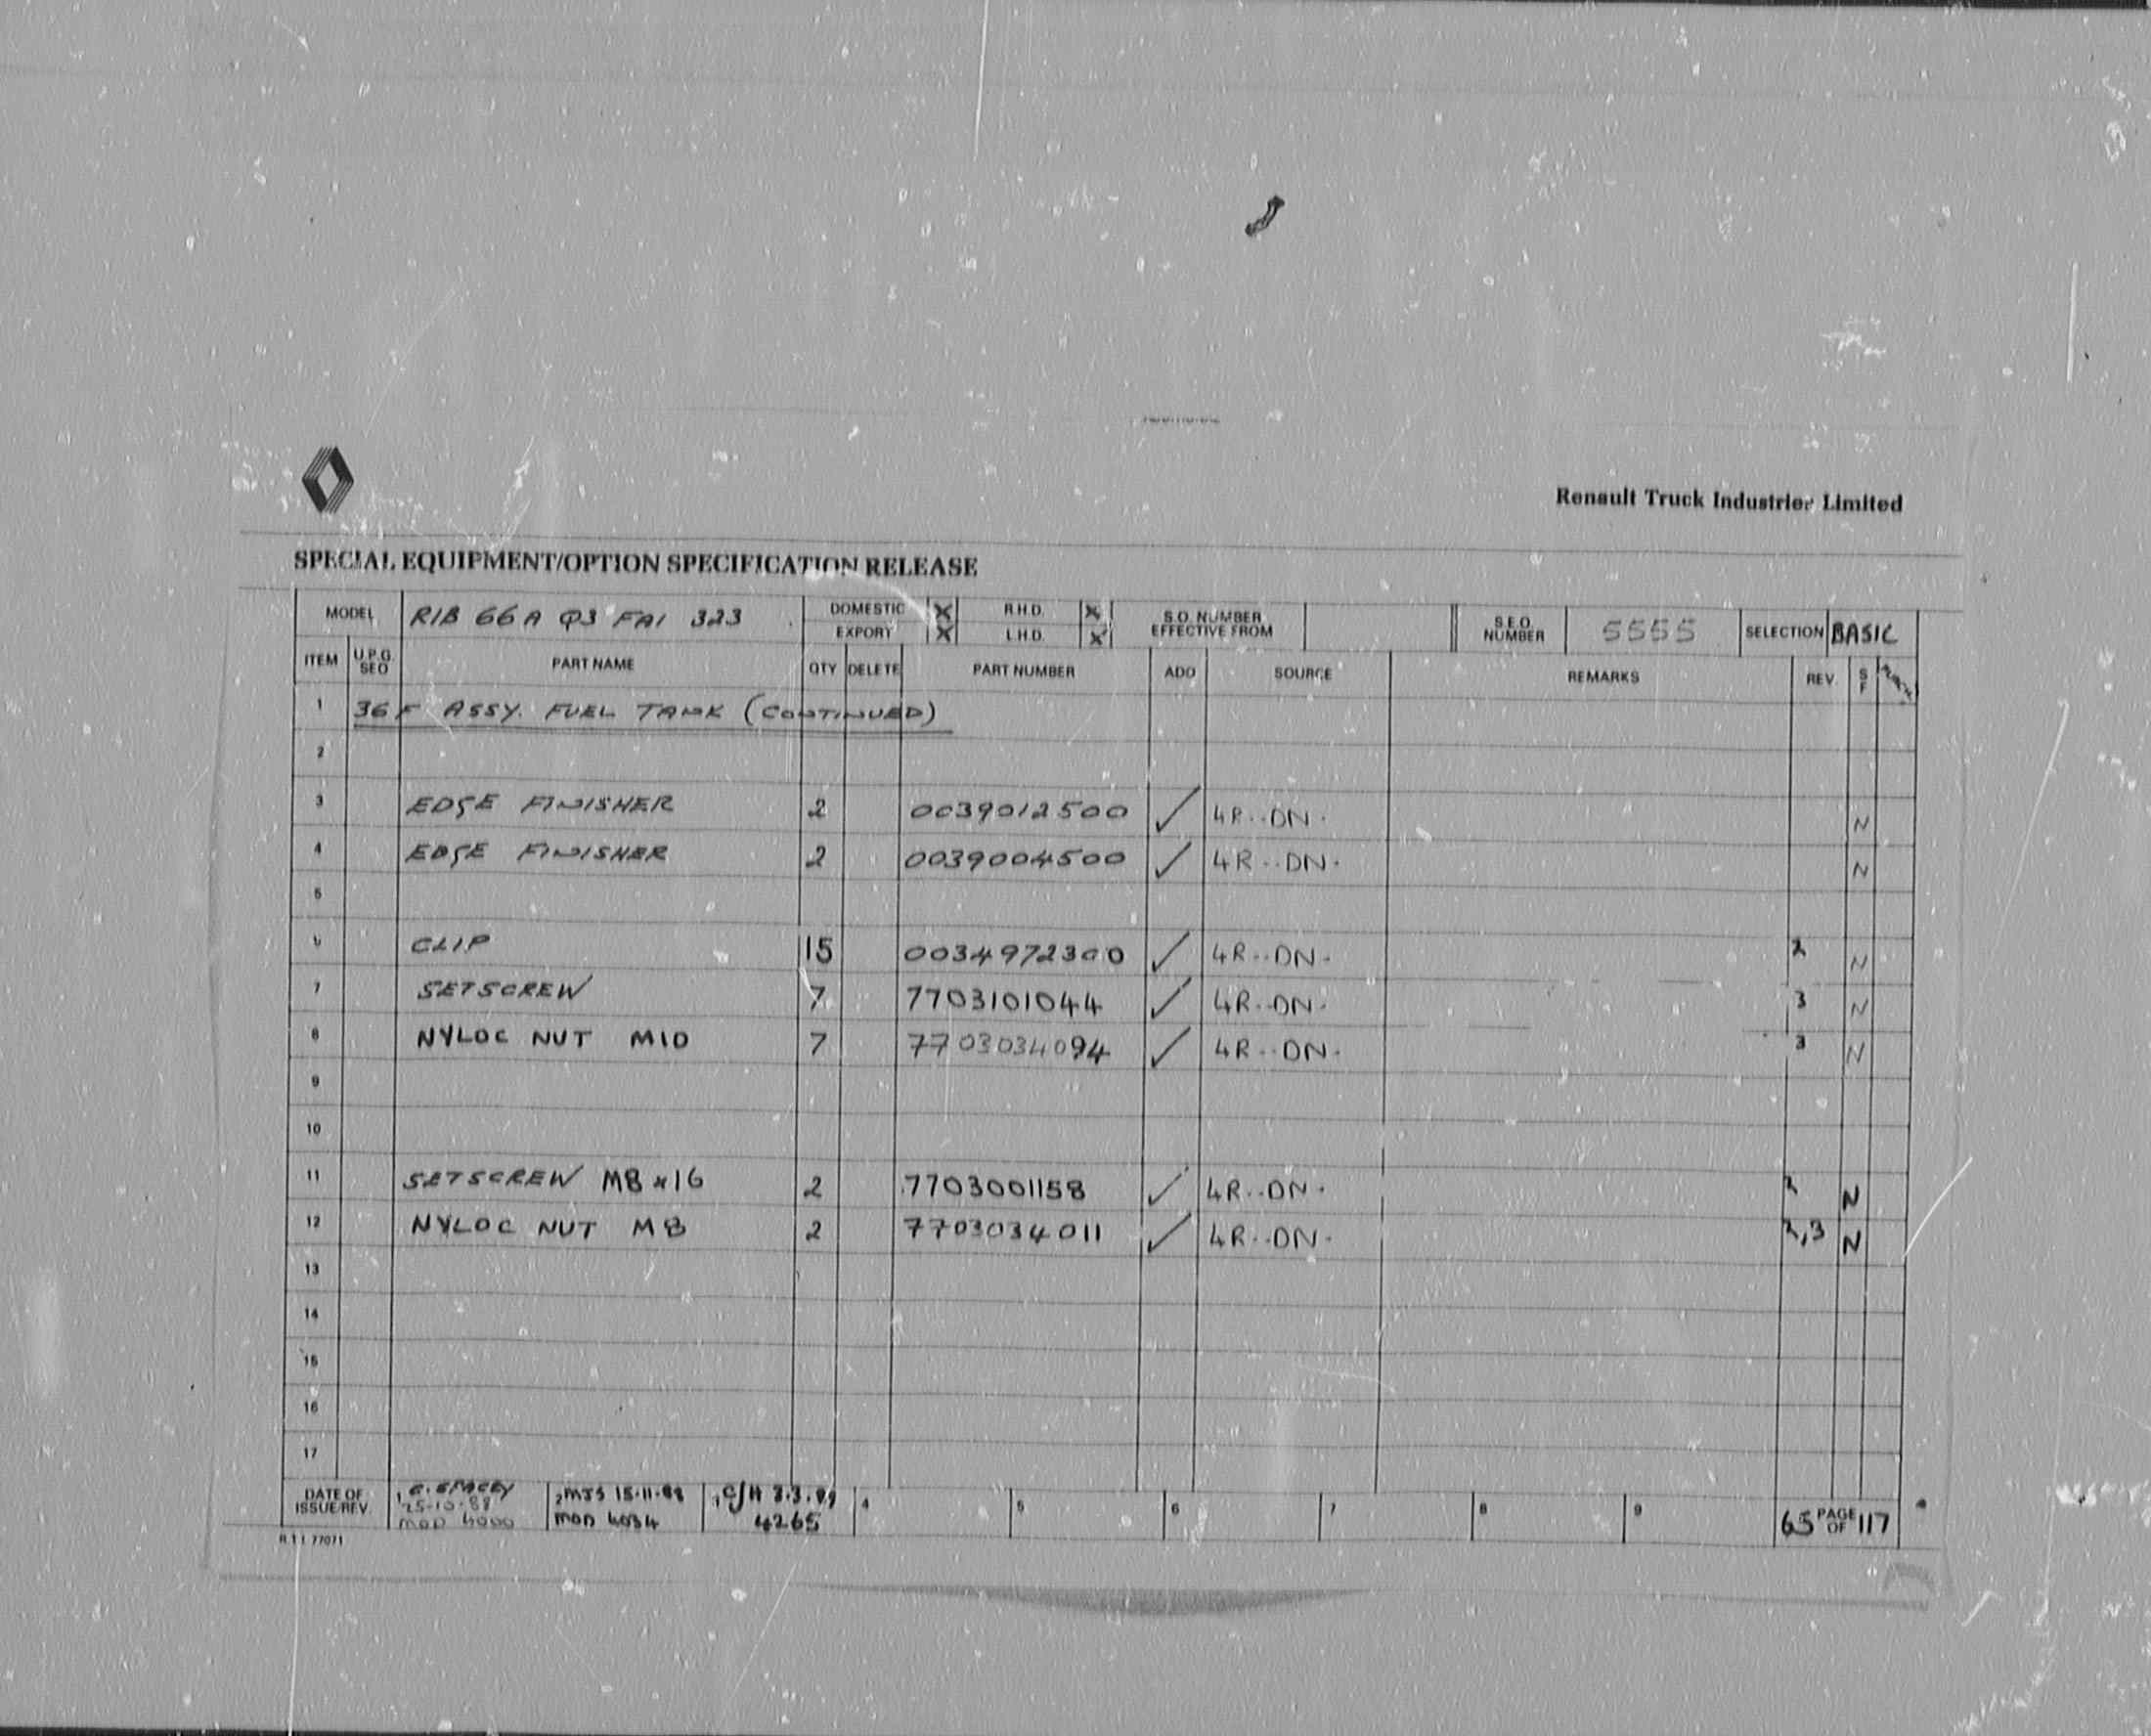 Renault Truck Industries Limited
SPECIAL EQUIPMENT/OPTION SPECIFICATION RELEASE
MODEL RIB 66A Q3 FA1 323 DOMESTIC X R.H.D. X S.O. NUMBER EFFECTIVE FROM S.E.O. NUMBER 5555 SELECTION BASIC
EXPORT X L.H.D. X
ITEM U.P.G. SEQ PART NAME QTY DELETE PART NUMBER ADD SOURCE REMARKS REV. S F
1 36F ASSY. FUEL TANK (CONTINUED)
2
3 EDGE FINISHER 2 0039012500 ✓ 4R..DN. N
4 EDGE FINISHER 2 0039004500 ✓ 4R..DN. N
5
6 CLIP 15 0034972300 ✓ 4R..DN. 2 N
7 SETSCREW 7 7703101044 ✓ 4R..DN. 3 N
8 NYLOC NUT M10 7 7703034094 ✓ 4R..DN. 3 N
9
10
11 SETSCREW M8x16 2 7703001158 ✓ 4R..DN. 2 N
12 NYLOC NUT M8 2 7703034011 ✓ 4R..DN. 2,3 N
13
14
15
16
17
DATE OF ISSUE/REV. 1 25-10-88 MOD 4000 2 MJS 15.11.88 MOD 4034 3 C/H 3.3.89 4265 4 5 6 7 8 9 65 PAGE OF 117
R.T.I. 77071